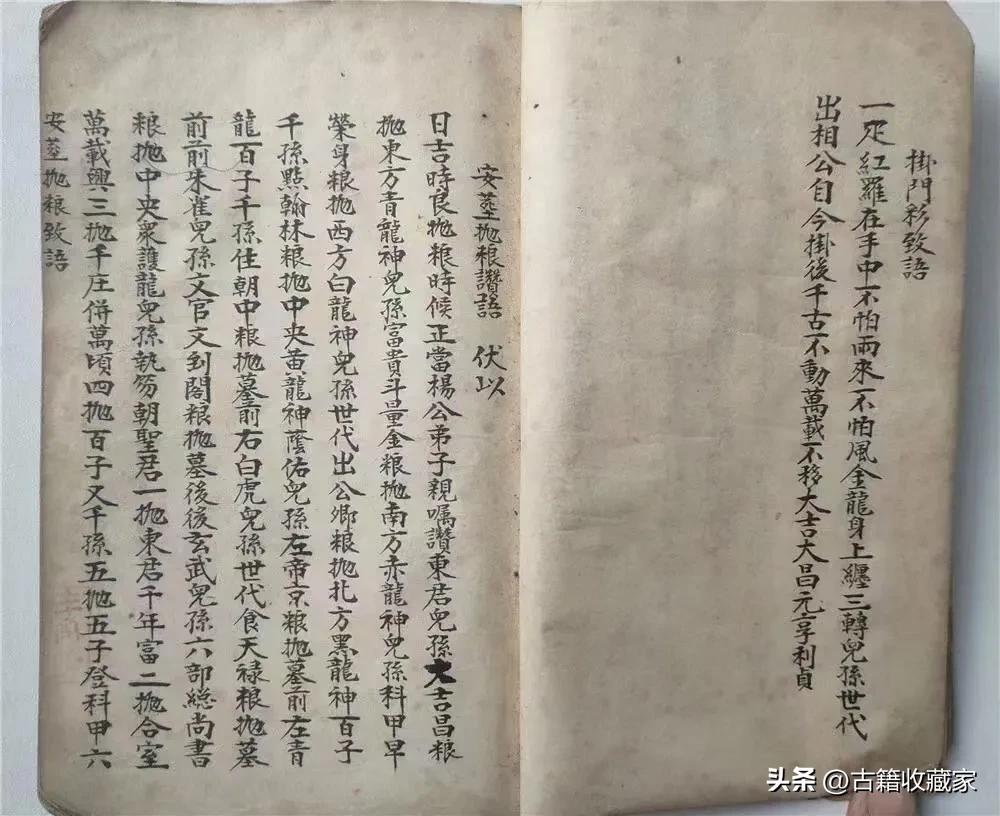 掛門彩致語
一疋紅羅在手中不怕雨來不怕風金龍身上纏三轉兒孫世代
出相公自今掛後千古不動萬載不移大吉大昌元亨利貞
安塟抛粮讚語 伏以
日吉時良抛粮時候正當楊公弟子親嘱讚東君兒孫大吉昌粮
抛東方青龍神兒孫富貴斗量金粮抛南方赤龍神兒孫科甲早
榮身粮抛西方白龍神兒孫世代出公卿粮抛北方黑龍神百子
千孫點翰林粮抛中央黄龍神蔭佑兒孫左帝京粮抛墓前左青
龍百子千孫住朝中粮抛墓前右白虎兒孫世代食天禄粮抛墓
前前朱雀兒孫文官文到閣粮抛墓後後玄武兒孫六部總尚書
粮抛中央衆護龍兒孫執笏朝聖君一抛東君千年富二抛合室
萬載興三抛千庄併萬頃四抛百子又千孫五抛五子登科甲六
安塟抛粮致語
头条 @古籍收藏家